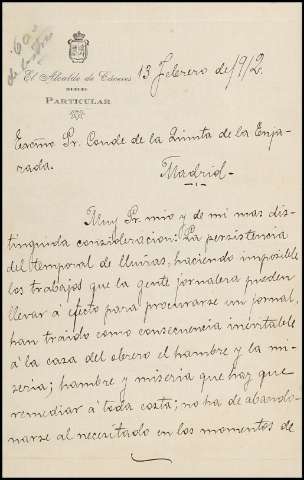 El Alcalde de Cáceres
PARTICULAR
13 Febrero de 1912.
Excmo Sr. Conde de la Quinta de la Enja-
rada.
Madrid-
Muy Sr. mio y de mi mas dis-
tinguida consideracion: La persistencia
del temporal de lluvias, haciendo imposible
los trabajos que la gente jornalera pueden
llevar á efecto para procurarse un jornal,
han traido como consecuencia inevitable
á la casa del obrero el hambre y la mi-
seria; hambre y miseria que hay que
remediar á toda costa; no ha de abando-
narse al necesitado en los momentos de